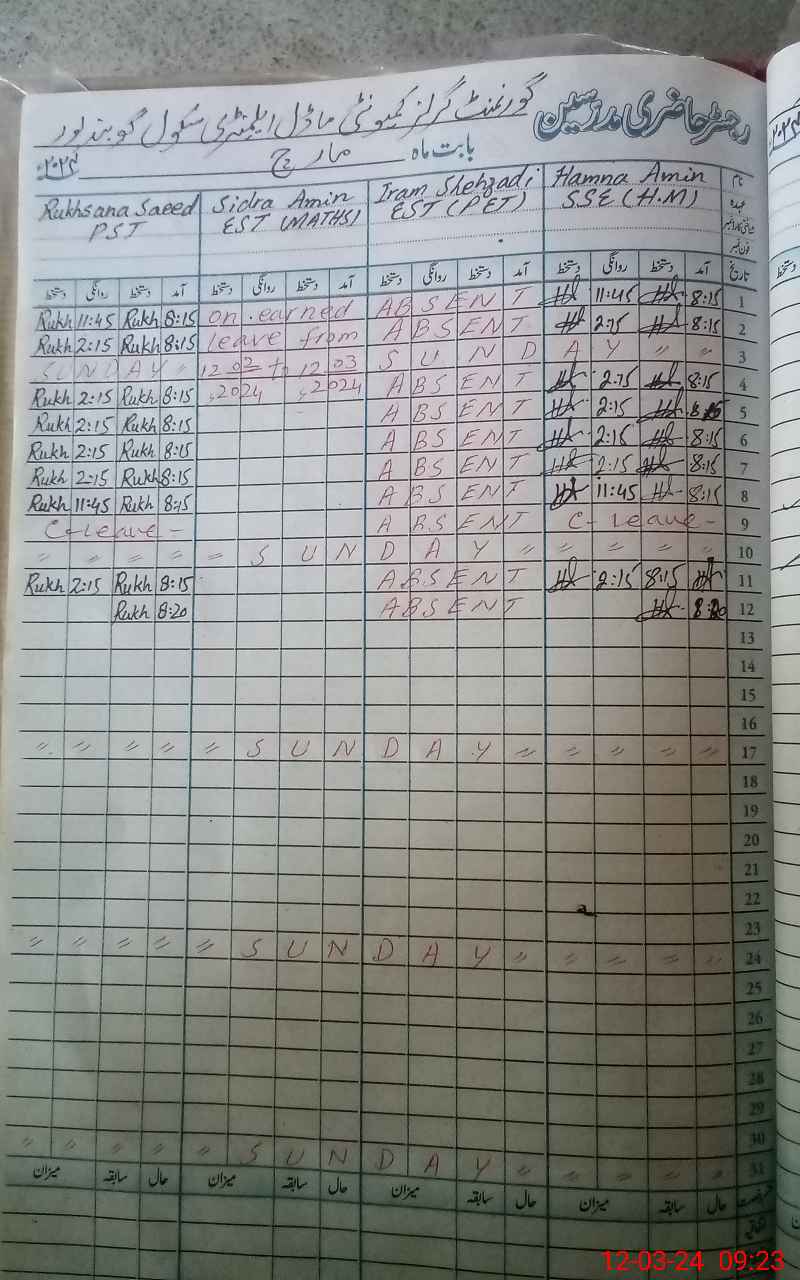 رجسٹر حاضری مدرسین گورنمنٹ گرلز کمیونٹی ماڈل ایلیمنٹری سکول گوبند پور
بابت ماہ مارچ ۲۰۲۴ء
نام Hamna Amin Iram Shehzadi Sidra Amin Rukhsana Saeed
عہدہ SSE (H.M) EST (PET) EST (MATHS) PST
فون نمبر
تاریخ آمد دستخط روانگی دستخط آمد دستخط روانگی دستخط آمد دستخط روانگی دستخط آمد دستخط روانگی دستخط
Rukh 11:45 Rukh 8:15 on earned ABSENT 11:45 8:15 1
Rukh 2:15 Rukh 8:15 leave from ABSENT 2:15 8:15 2
SUNDAY " 12.02 to 12.03 SUNDAY " " 3
Rukh 2:15 Rukh 8:15 .2024 .2024 ABSENT 2:15 8:15 4
Rukh 2:15 Rukh 8:15 ABSENT 2:15 8:15 5
Rukh 2:15 Rukh 8:15 ABSENT 2:15 8:15 6
Rukh 2:15 Rukh 8:15 ABSENT 2:15 8:15 7
Rukh 11:45 Rukh 8:15 ABSENT 11:45 8:15 8
C-Leave- ABSENT C-Leave- 9
" " " " " SUNDAY " " " " " 10
Rukh 2:15 Rukh 8:15 ABSENT 2:15 8:15 11
Rukh 8:20 ABSENT 8:20 12
13
14
15
16
" " " " " SUNDAY " " " " " 17
18
19
20
21
22
23
" " " " " SUNDAY " " " " " 24
25
26
27
28
29
30
" " " " " SUNDAY " " " " " 31
حال سابقہ میزان حال سابقہ میزان حال سابقہ میزان حال سابقہ میزان
12-03-24 09:23